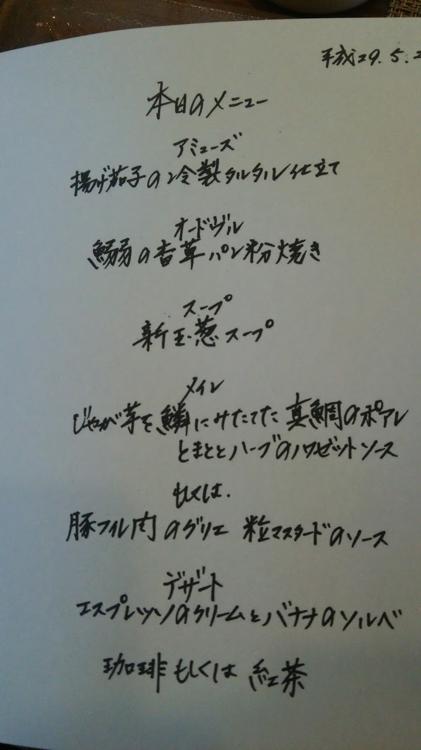 平成29.5.2
本日のメニュー
アミューズ
揚げ茄子の冷製タルタル仕立て
オードヴル
鰯の香草パン粉焼き
スープ
新玉葱スープ
メイン
じゃが芋を鱗にみたてた真鯛のポアレ
とまととハーブのノワゼットソース
もしくは.
豚フィレ肉のグリエ 粒マスタードのソース
デザート
エスプレッソのクリームとバナナのソルベ
珈琲もしくは紅茶